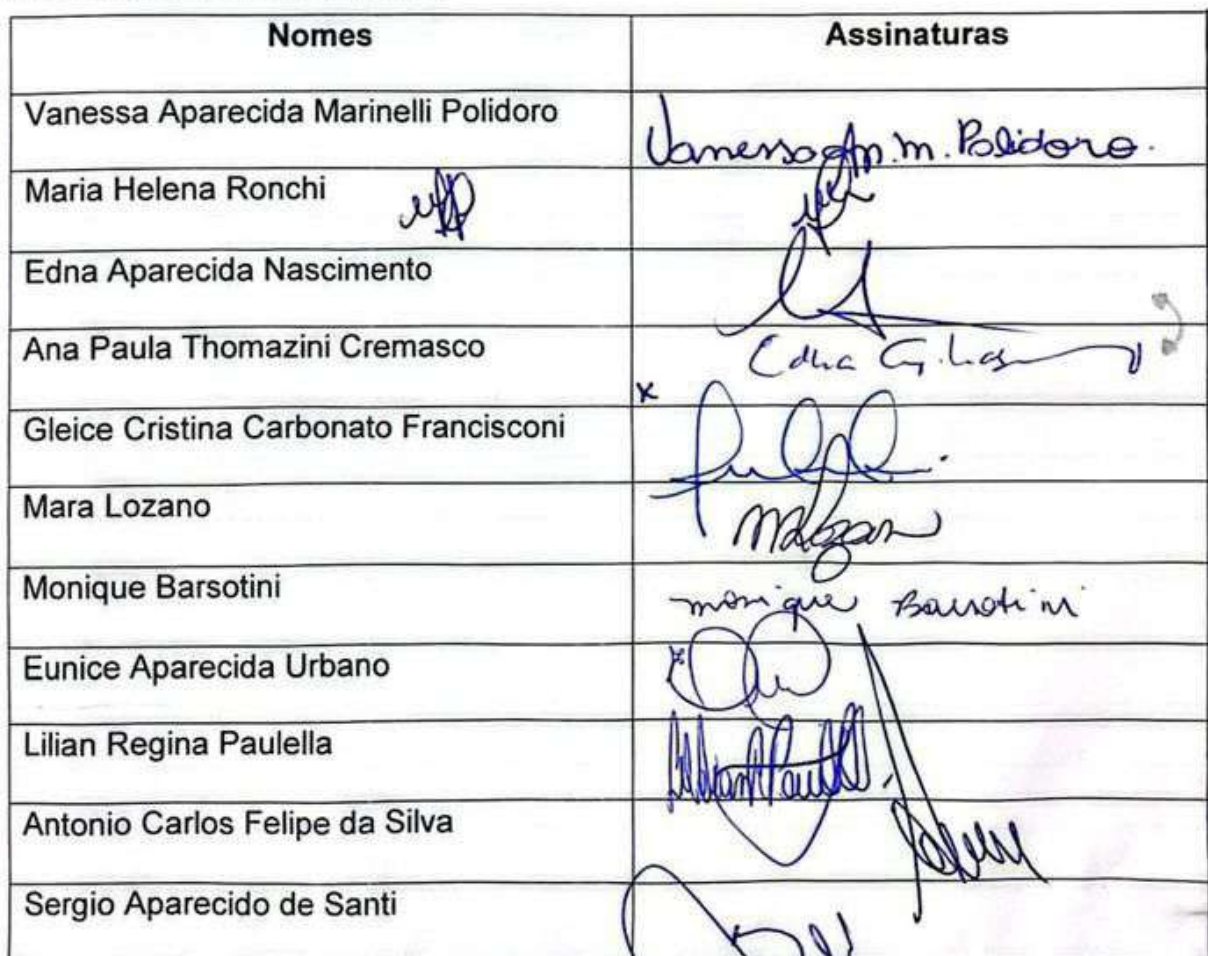 Nomes Assinaturas
Vanessa Aparecida Marinelli Polidoro Vanessa Ap. m. Polidoro.
Maria Helena Ronchi
Edna Aparecida Nascimento
Ana Paula Thomazini Cremasco Edna
x
Gleice Cristina Carbonato Francisconi
Mara Lozano
Monique Barsotini monique Barsotini
Eunice Aparecida Urbano
Lilian Regina Paulella
Antonio Carlos Felipe da Silva
Sergio Aparecido de Santi